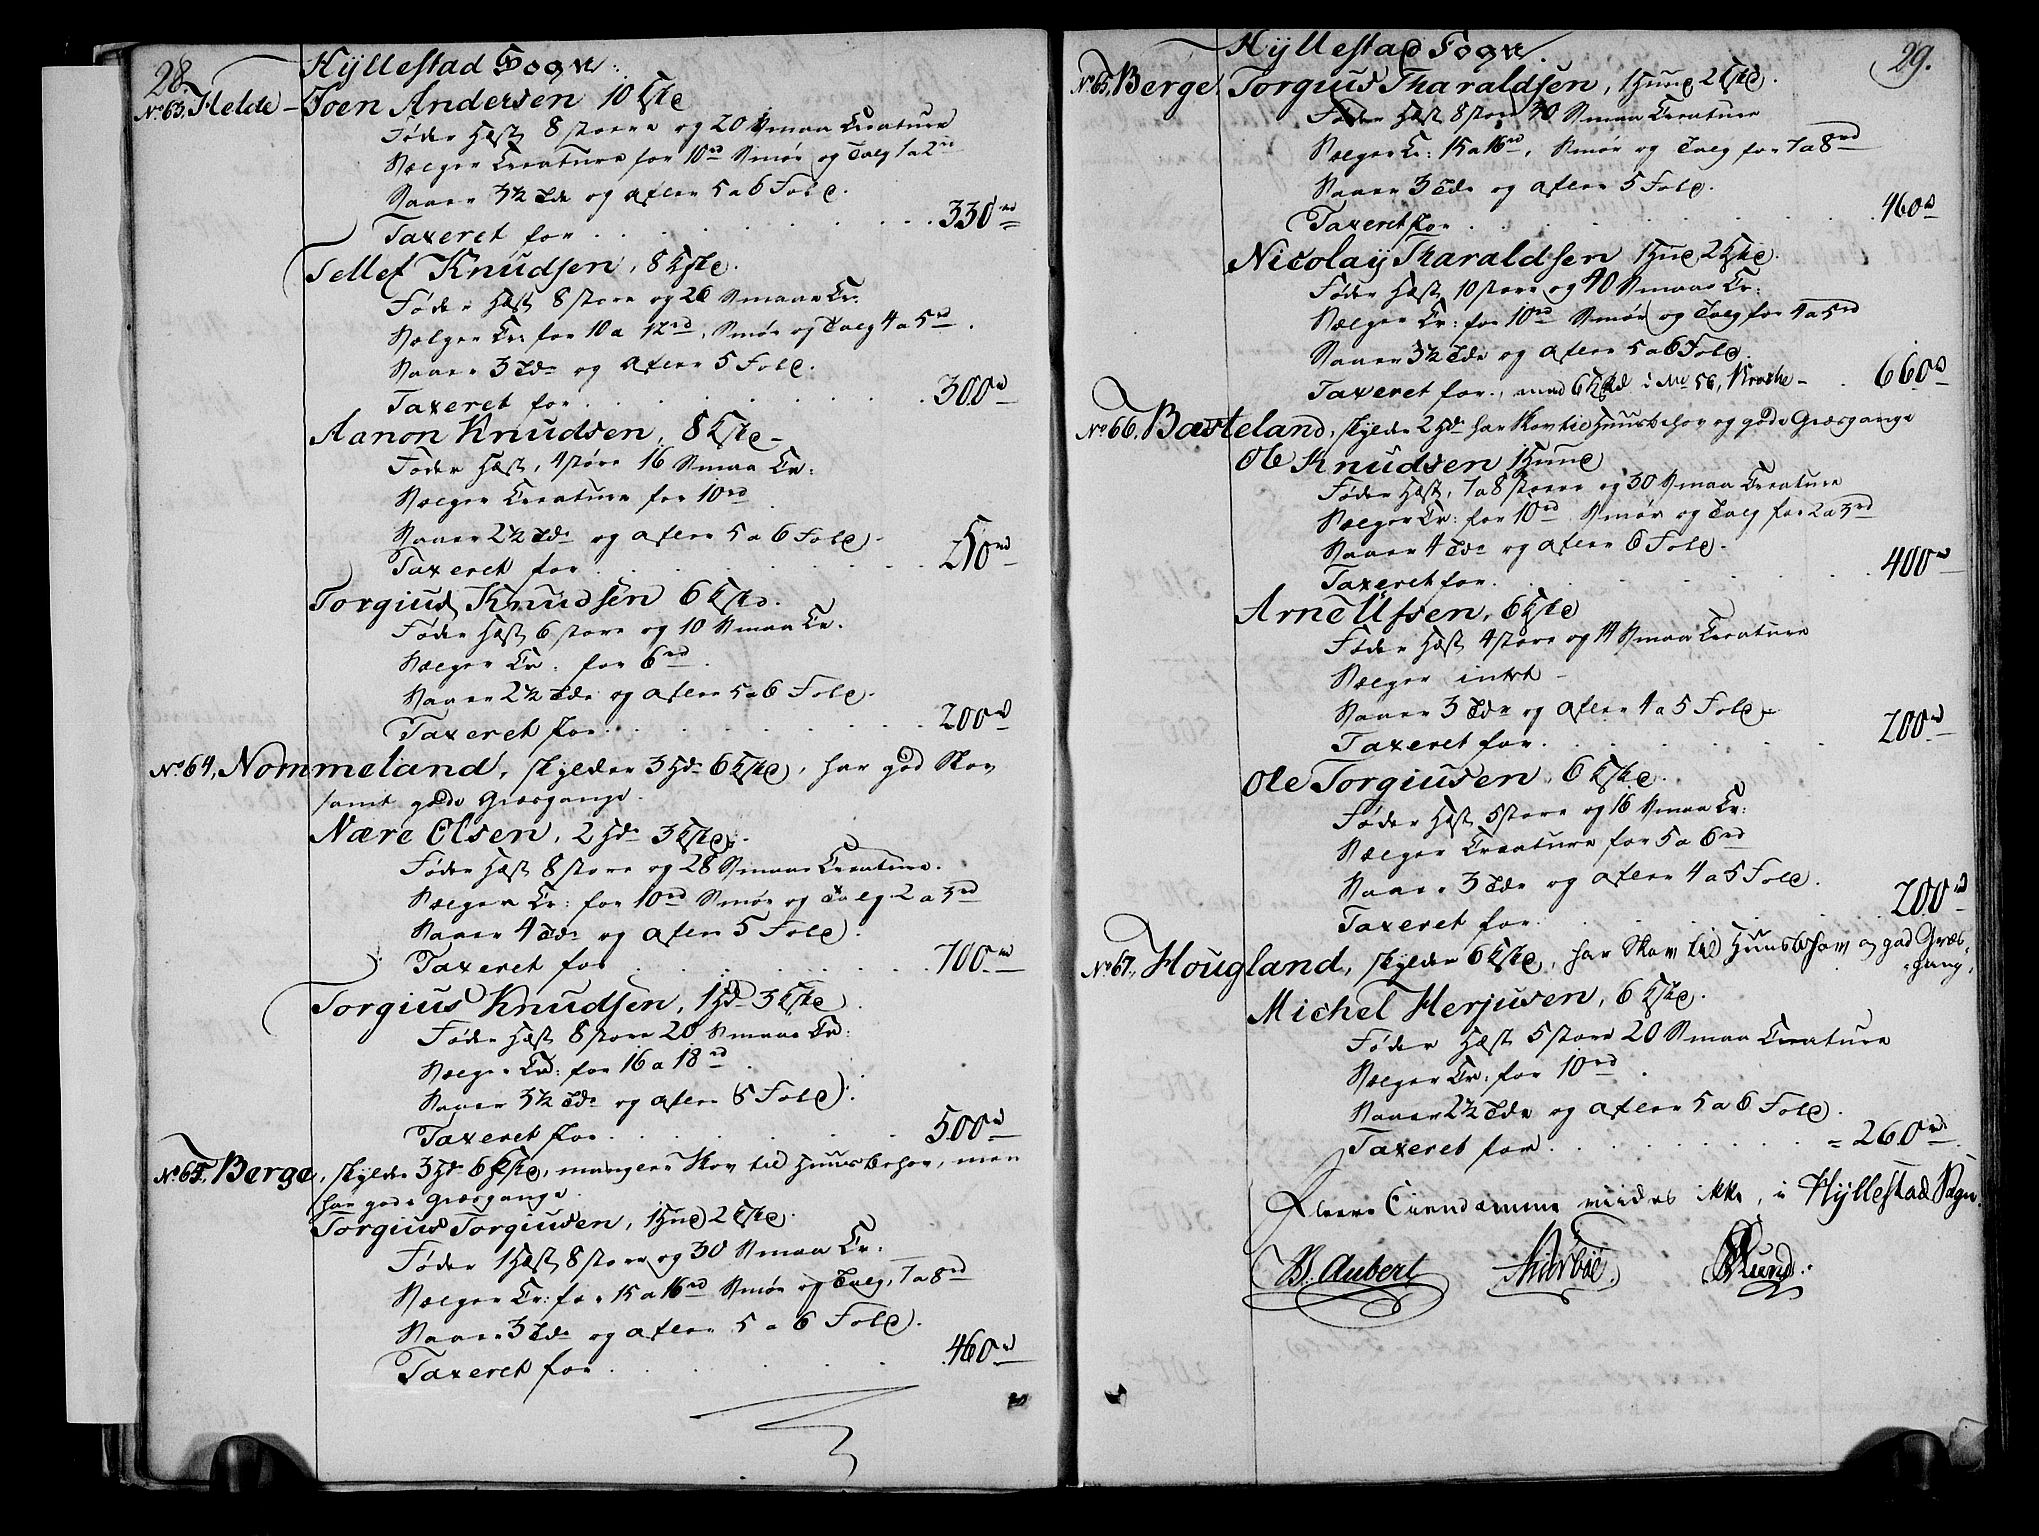 28.
Hÿllestad Sogn.
No. 63, Helde – Joen Andersen 10 Kſke
Føder Hæst 8 store og 20 Smaa Creature
Sælger Creature for 10rd Smør og Talg 1 a 2rd
Saaer 3½ Tde og afler 5 a 6 Fold.
Taxeret for . . . 330rd
Tellef Knudsen, 8 Kſke.
Føder Hæst 8 store og 26 Smaae Cr:
Sælger Cr: for 10 a 12rd, Smør og Talg 4 a 5rd.
Saaer 3 Tdr og afler 5 Fold.
Taxeret for . . . 300rd
Aanon Knudsen, 8 Kſke –
Føder Hæst, 4 store 16 Smaa Cr:
Sælger Creature for 10rd
Saaer 2½ Tdr og afler 5 a 6 Fold.
Taxeret for . . . 250rd
Torgius Knudsen 6 Kſke.
Føder Hæst 6 store og 10 Smaa Cr.
Sælger Cr: for 6rd.
Saaer 2½ Tde og afler 5 a 6 Fold.
Taxeret for . . . 200rd
No. 64, Nommeland, skylder 3 Hdr 6 Kſke, har god Skov
samt gode Græsgange.
Nære Olsen, 2 Hdr 3 Kſke.
Føder Hæst 8 store og 28 Smaae Creature.
Sælger Cr: for 10rd Smør og Talg 2 a 3rd
Saaer 4 Tdr og afler 5 Fold.
Taxeret for . . . 700rd
Torgius Knudsen, 1 Hd 3 Kſke
Føder Hæst 8 store 20 Smaae Cr:
Sælger Cr: for 16 a 18rd
Saaer 3½ Tdr og afler 5 Fold.
Taxeret for . . . 500rd
No. 65, Berge, skylder 3 Hdr 6 Kſke, mangler Skov til Huusbehov, men
har gode Græsgange.
Torgius Torgiusen, 1 Hue 2 Kſke.
Føder 1 Hæst 8 store og 30 Smaa Cr.
Sælger Cr: for 15 a 16rd Smør og Talg, 7 a 8rd
Saaer 3 Tdr og afler 5 a 6 Fold.
Taxeret for . . . 460rd
29.
Hÿllestad Sogn.
No. 65, Berge, Torgius Tharaldsen, 1 Hue 2 Kſke.
Føder Hæst 8 store 30 Smaa Creature
Sælger Cr: 15 a 16rd, Smør og Talg for 7 a 8rd
Saaer 3 Tdr og afler 5 Fold.
Taxeret for . . . 460rd
Nicolaÿ Tharaldsen 1 Hue 2 Kſke.
Føder Hæst 10 store og 40 Smaae Cr:
Sælger Cr: for 10rd Smør og Talg for 4 a 5rd
Saaer 3½ Tdr og afler 5 a 6 Fold.
Taxeret for, med 6 Kſke i No 56, – . 660rd
No. 66, Bæsteland, skylder 2 Hdr har Skov til Huusbehov og gode Græsgange
Ole Knudsen 1 Hue
Føder Hæst, 7 a 8 store og 30 Smaa Creature
Sælger Cr: for 10rd Smør og Talg for 2 a 3rd
Saaer 4 Tdr og afler 6 Fold.
Taxeret for. . . . 400rd
Arne Ulfsen, 6 Kſke
Føder Hæst 4 store og 14 Smaa Creature
Sælger intet –
Saaer 3 Tdr og afler 4 a 5 Fold.
Taxeret for. . . . 200rd
Ole Torgiusen, 6 Kſke.
Føder Hæst 5 store og 16 Smaa Cr:
Sælger Creature for 5 a 6rd
Saaer 3 Tdr og afler 4 a 5 Fold.
Taxeret for. . . . 200rd
No. 67, Hougland, skylder 6 Kſke, har Skov til Huusbehov og god Græs-
gang.
Michel Herjusen, 6 Kſke.
Føder Hæst 5 store 20 Smaa Creature
Sælger Cr: for 10rd.
Saaer 2½ Tdr og afler 5 a 6 Fold.
Taxeret for. . . . 260rd
Fleere Eiendomme vides ikke, i Hÿllestad Sogn.
B. Aubert Lund